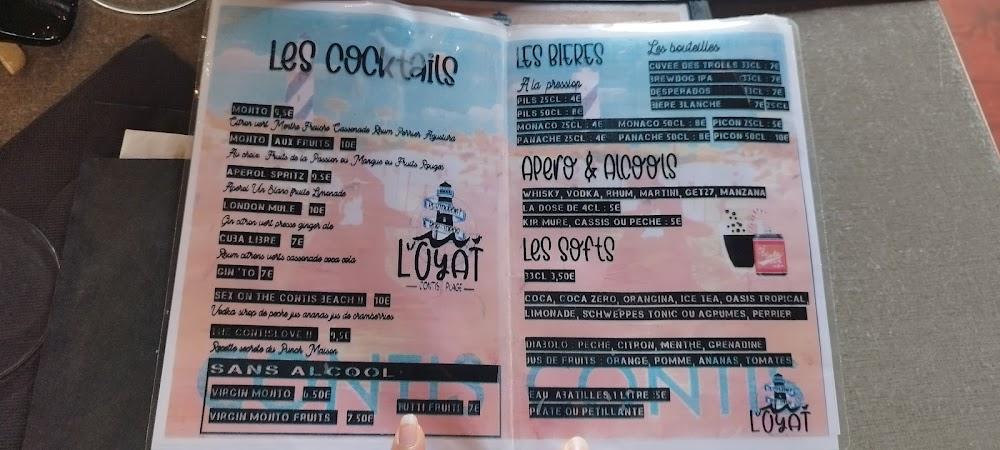 Les Cocktails
MOJITO 9,5€
Citron vert Menthe Fraiche Cassonade Rhum Perrier Agustura
MOJITO AUX FRUITS 10€
Au choix Fruits de la Passion ou Mangue ou Fruits Rouges
APEROL SPRITZ 9.5€
Aperol Vin Blanc fruité Limonade
LONDON MULE 10€
Gin citron vert pressé ginger ale
CUBA LIBRE 7€
Rhum citrons verts cassonade coca cola
GIN'TO 7€
SEX ON THE CONTIS BEACH !! 10€
Vodka sirop de peche jus ananas jus de cranberries
THE CONTISLOVE !! 9,5€
Recette secrète du Punch Maison
SANS ALCOOL
VIRGIN MOJITO 6.50€
VIRGIN MOJITO FRUITS 7.50€
TUTTI FRUITI 7€
L'OYAT
CONTIS PLAGE
LES BIERES
A la pression
PILS 25CL : 4€
PILS 50CL : 8€
MONACO 25CL : 4€ MONACO 50CL : 8€ PICON 25CL : 5€
PANACHE 25CL : 4€ PANACHE 50CL : 8€ PICON 50CL : 10€
Les bouteilles
CUVEE DES TROLLS 33CL : 7€
BREWDOG IPA 33CL : 7€
DESPERADOS 33CL : 7€
BIERE BLANCHE 7€ 25CL
APERO & ALCOOLS
WHISKY, VODKA, RHUM, MARTINI, GET27, MANZANA
LA DOSE DE 4CL : 5€
KIR MURE, CASSIS OU PECHE : 5€
LES SOFTS
33CL 3,50€
COCA, COCA ZÉRO, ORANGINA, ICE TEA, OASIS TROPICAL,
LIMONADE, SCHWEPPES TONIC OU AGRUMES, PERRIER
DIABOLO : PECHE, CITRON, MENTHE, GRENADINE
JUS DE FRUITS : ORANGE, POMME, ANANAS, TOMATES
EAU ABATILLES 1 LITRE :5€
PLATE OU PETILLANTE
CONTIS CONTIS
L'OYAT